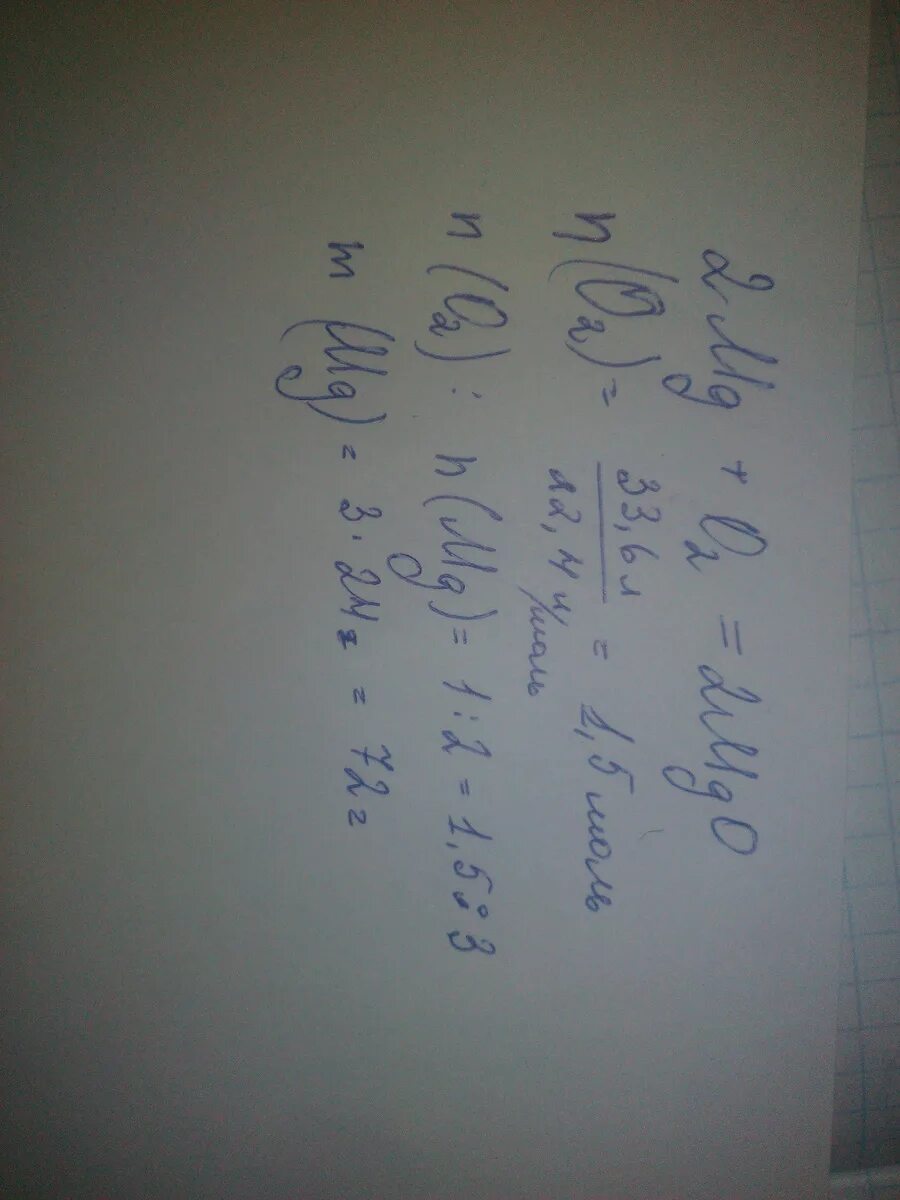 2Mg + O₂ = 2MgO
n (O₂) = 33,6 л / 22,4 л/моль = 1,5 моль
n (O₂) : n (Mg) = 1 : 2 = 1,5 : 3
m (Mg) = 3 · 24г = 72г